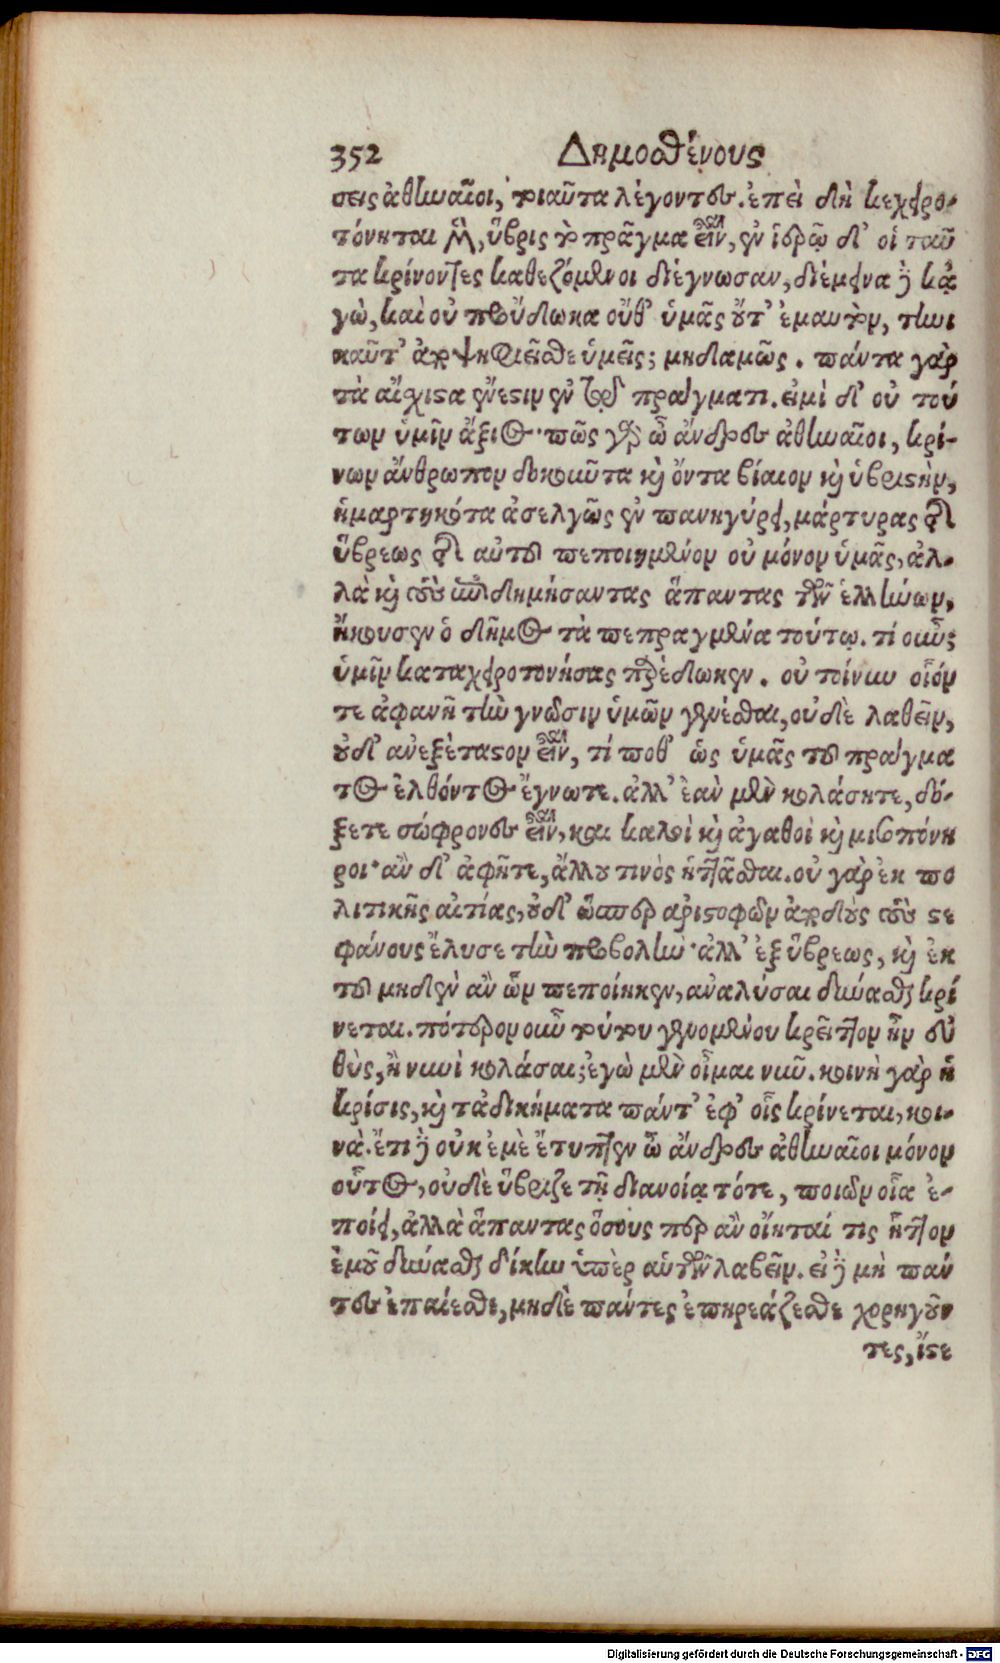 352 Δημοσθένους
σεις ἀθηναῖοι, τοιαῦτα λέγοντες. ἐπεὶ δὴ κεχειρο-
τόνηται μὲν, ὕβρις τὸ πρᾶγμα εἶναι, ἐν ἱερῷ δ' οἱ ταῦ
τα κρίνοντες καθεζόμενοι διέγνωσαν, διέμεινα δὲ κᾀ
γὼ, καὶ οὐ προὔδωκα οὔθ' ὑμᾶς οὔτ' ἐμαυτὸν, τηνι
καῦτ' ἀποψηφιεῖσθε ὑμεῖς; μηδαμῶς. πάντα γὰρ
τὰ αἴχιστα ἔνεστιν ἐν τῷ πράγματι. εἰμὶ δ' οὐ τού
των ὑμῖν ἄξιος· πῶς γὰρ ὦ ἄνδρες ἀθηναῖοι, κρί-
νων ἄνθρωπον δοκοῦντα καὶ ὄντα βίαιον καὶ ὑβριστὴν,
ἡμαρτηκότα ἀσελγῶς ἐν πανηγύρει, μάρτυρας τῆς
ὕβρεως τῆς αὐτοῦ πεποιημένον οὐ μόνον ὑμᾶς, ἀλ-
λὰ καὶ τοὺς ἐπιδημήσαντας ἅπαντας τῶν ἑλλήνων,
ἤκουσεν ὁ δῆμος τὰ πεπραγμένα τούτῳ. τί οὖν;
ὑμῖν καταχειροτονήσας παρέδωκεν. οὐ τοίνυν οἷόν
τε ἀφανῆ τὴν γνῶσιν ὑμῶν γενέσθαι, οὐδὲ λαθεῖν,
οὐδ' ἀνεξέταστον εἶναι, τί ποθ' ὡς ὑμᾶς τοῦ πράγμα
τος ἐλθόντος ἔγνωτε. ἀλλ' ἐὰν μὲν κολάσητε, δό-
ξετε σώφρονες εἶναι, και καλοὶ καὶ ἀγαθοὶ καὶ μισοπόνη
ροι· ἂν δ' ἀφῆτε, ἄλλου τινὸς ἡττᾶσθαι. οὐ γὰρ ἐκ πο
λιτικῆς αἰτίας, οὐδ' ὥσπερ ἀριστοφῶν ἀποδοὺς τοὺς στε
φάνους ἔλυσε τὴν προβολὴν· ἀλλ' ἐξ ὕβρεως, καὶ ἐκ
τοῦ μηδὲν ἂν ὧν πεποίηκεν, ἀναλύσαι δύνασθαι κρί
νεται. πότερον οὖν τούτου γενομένου κρεῖττον ἦν εὐ
θὺς, ἢ νυνὶ κολάσαι; ἐγὼ μὲν οἶμαι νῦν. κοινὴ γὰρ ἡ
κρίσις, καὶ τἀδικήματα πάντ' ἐφ' οἷς κρίνεται, κοι-
νὰ. ἔτι δὲ οὐκ ἐμὲ ἔτυπτεν ὦ ἄνδρες ἀθηναῖοι μόνον
οὗτος, οὐδὲ ὕβριζε τῇ διανοίᾳ τότε, ποιῶν οἷα ἐ-
ποίει, ἀλλὰ ἅπαντας ὅσους περ ἂν οἴηταί τις ἧττον
ἐμοῦ δύνασθαι δίκην ὑπὲρ αὑτῶν λαβεῖν. εἰ δὲ μὴ πάν
τες ἐπαίεσθε, μηδὲ πάντες ἐπηρεάζεσθε χορηγοῦν
τες, ἴστε
Digitalisierung gefördert durch die Deutsche Forschungsgemeinschaft - DFG